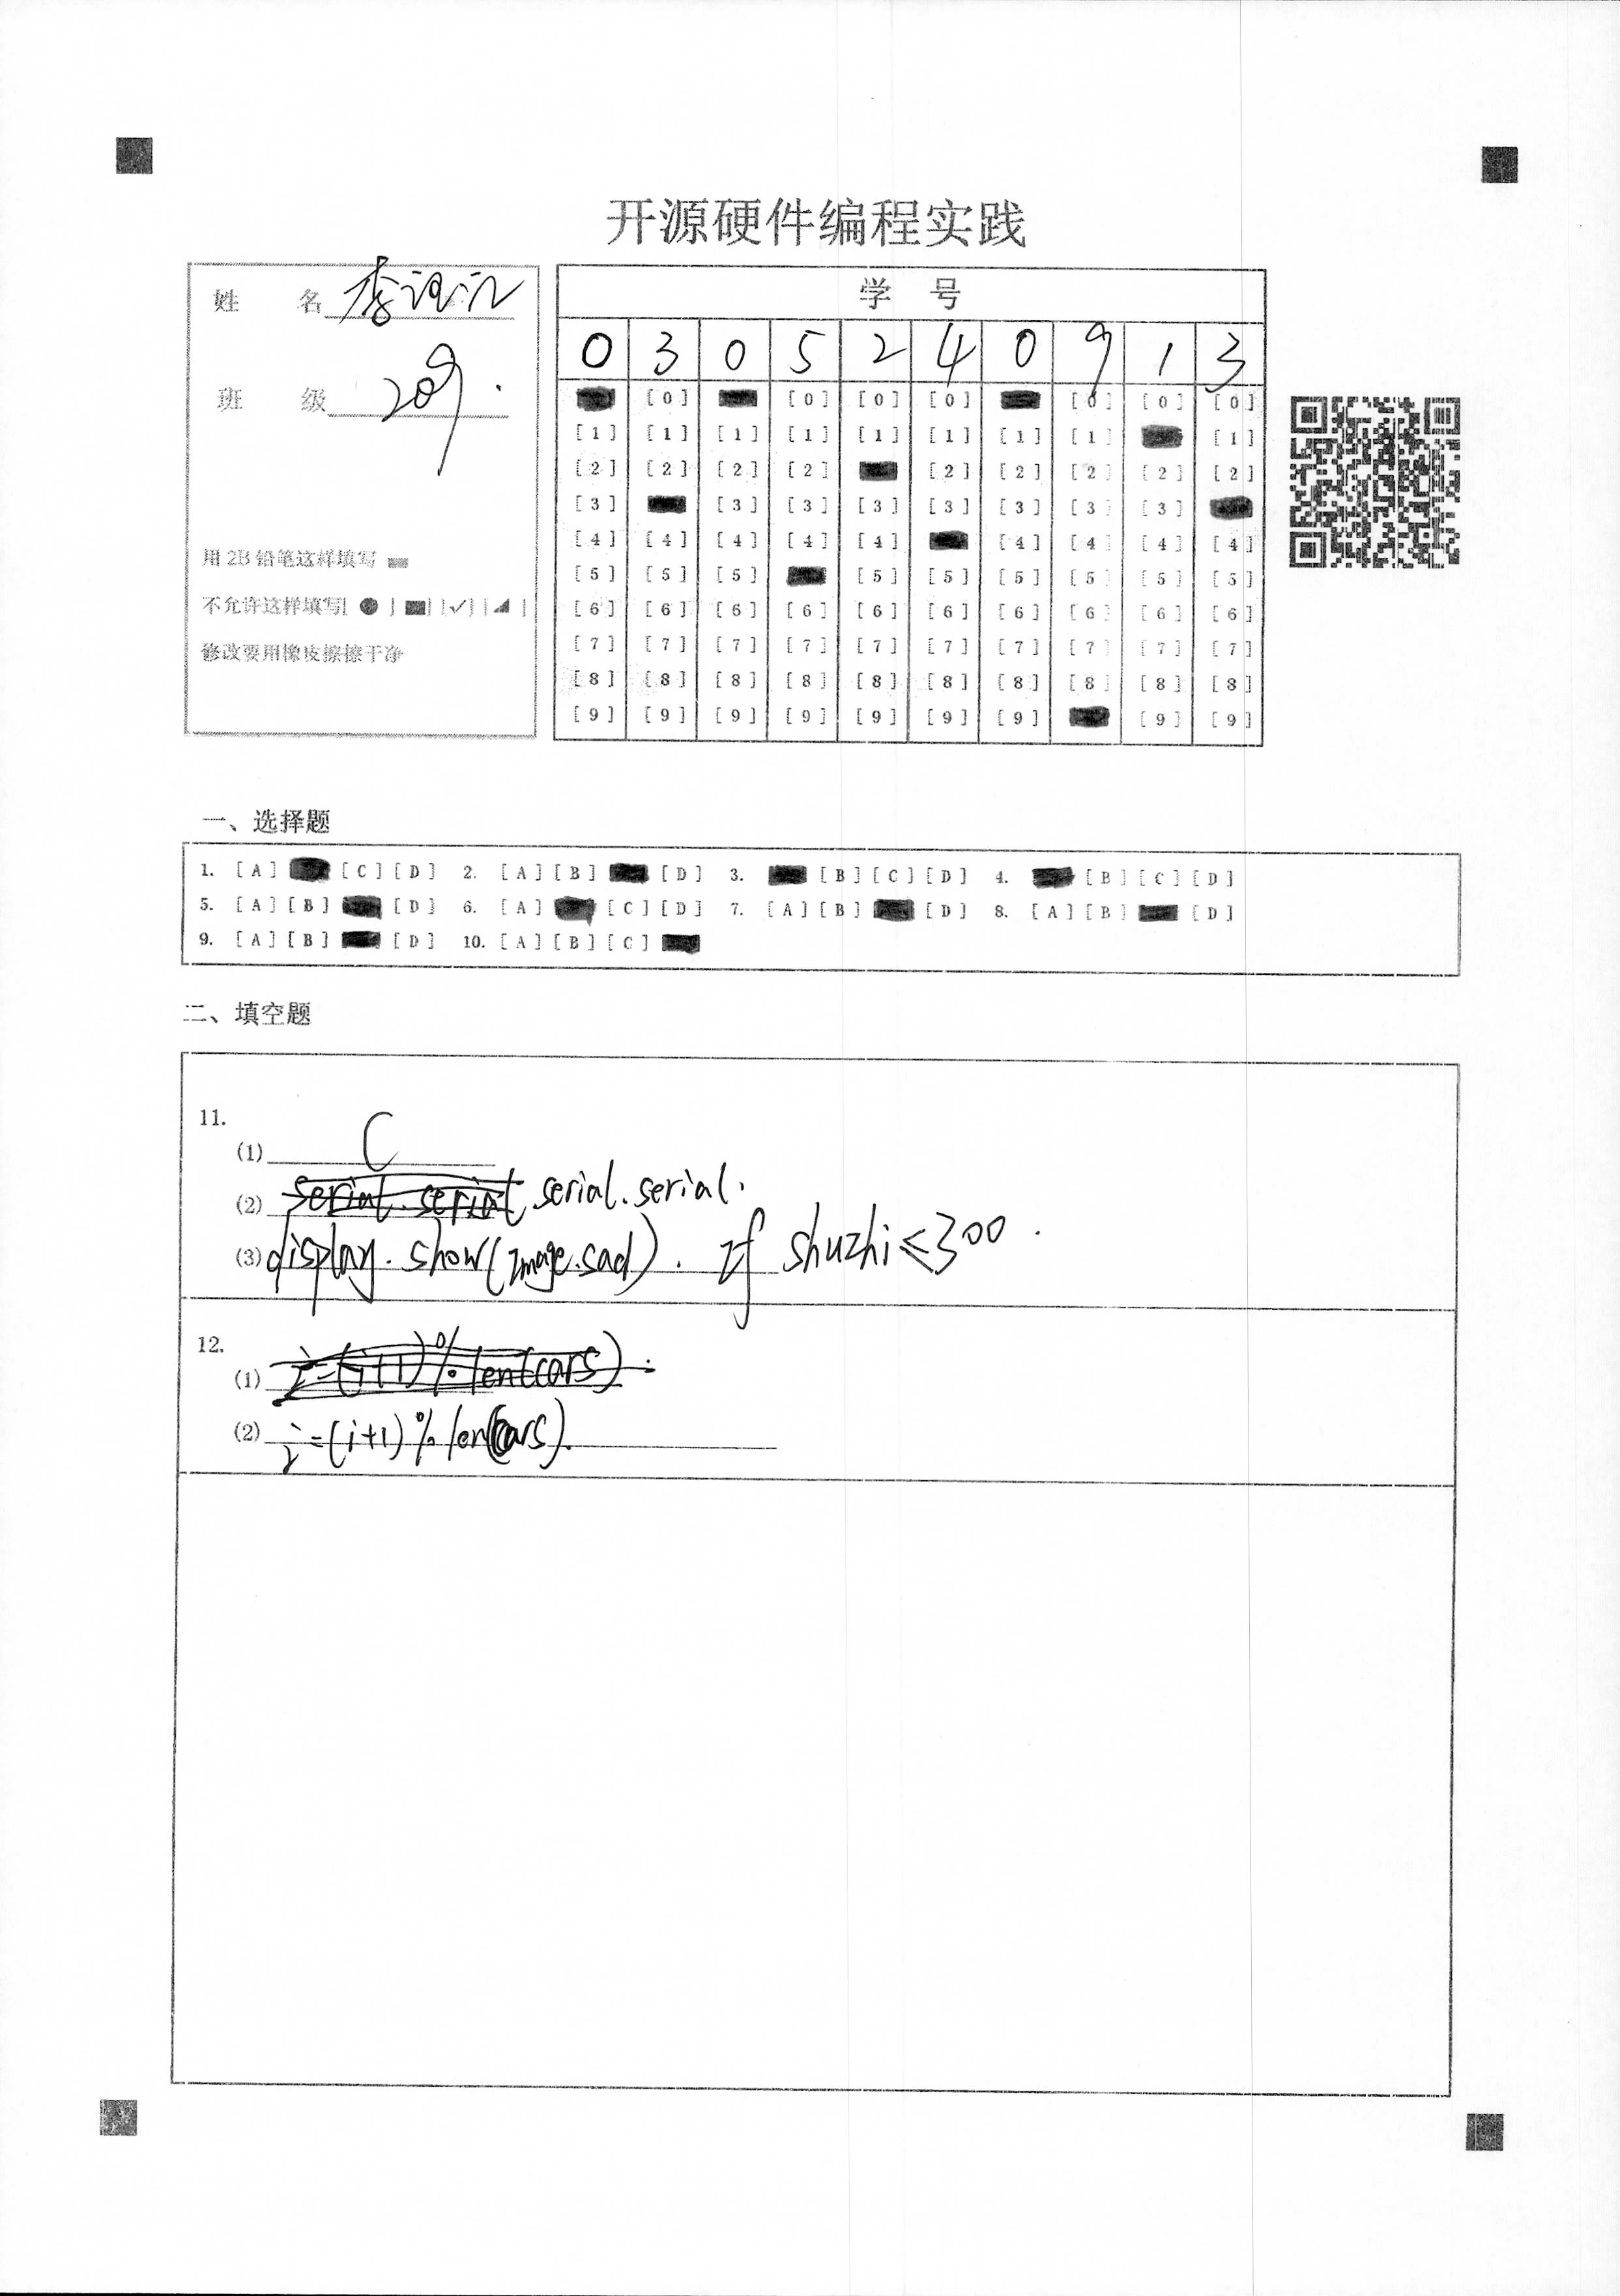 开源硬件编程实践
姓 名 李
班 级 209.
用 2B 铅笔这样填写
不允许这样填写[ ● ] [■] [✓] [◢ ]
修改要用橡皮擦擦干净
学 号
0 3 0 5 2 4 0 9 1 3
[0] [0] [0] [0] [0] [0] [0]
[1] [1] [1] [1] [1] [1] [1] [1] [1]
[2] [2] [2] [2] [2] [2] [2] [2] [2]
[3] [3] [3] [3] [3] [3] [3] [3]
[4] [4] [4] [4] [4] [4] [4] [4] [4]
[5] [5] [5] [5] [5] [5] [5] [5] [5]
[6] [6] [6] [6] [6] [6] [6] [6] [6] [6]
[7] [7] [7] [7] [7] [7] [7] [7] [7] [7]
[8] [8] [8] [8] [8] [8] [8] [8] [8] [8]
[9] [9] [9] [9] [9] [9] [9] [9] [9]
一、选择题
1. [A] [C] [D] 2. [A] [B] [D] 3. [B] [C] [D] 4. [B] [C] [D]
5. [A] [B] [D] 6. [A] [C] [D] 7. [A] [B] [D] 8. [A] [B] [D]
9. [A] [B] [D] 10. [A] [B] [C]
二、填空题
11.
(1) C
(2) serial.serial serial.serial.
(3) display.show(Image.sad). if shuzhi≤300.
12.
(1) i=(i+1)%len(cars).
(2) i=(i+1)%len(cars).